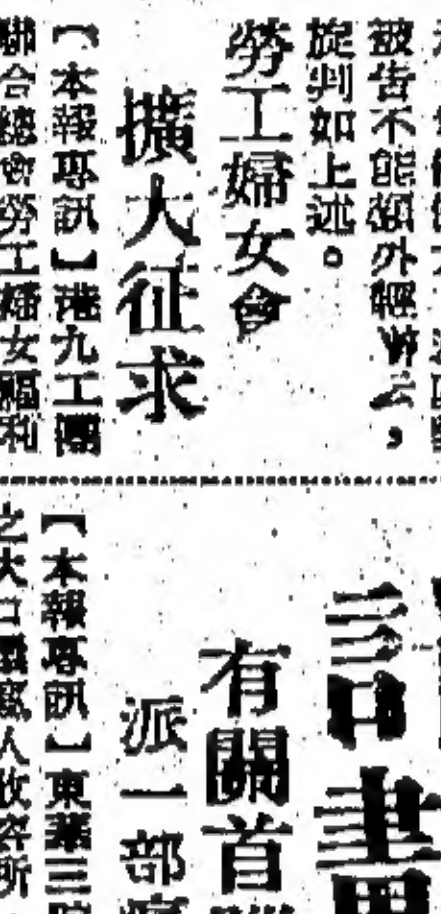 被告不能額外輕辦云，
旋判如上述。
勞工婦女會
擴大征求
【本報專訊】港九工團
聯合總會勞工婦女福利
有關首
派一部
【本報專訊】東華三院
之大口環瘋人收容所，